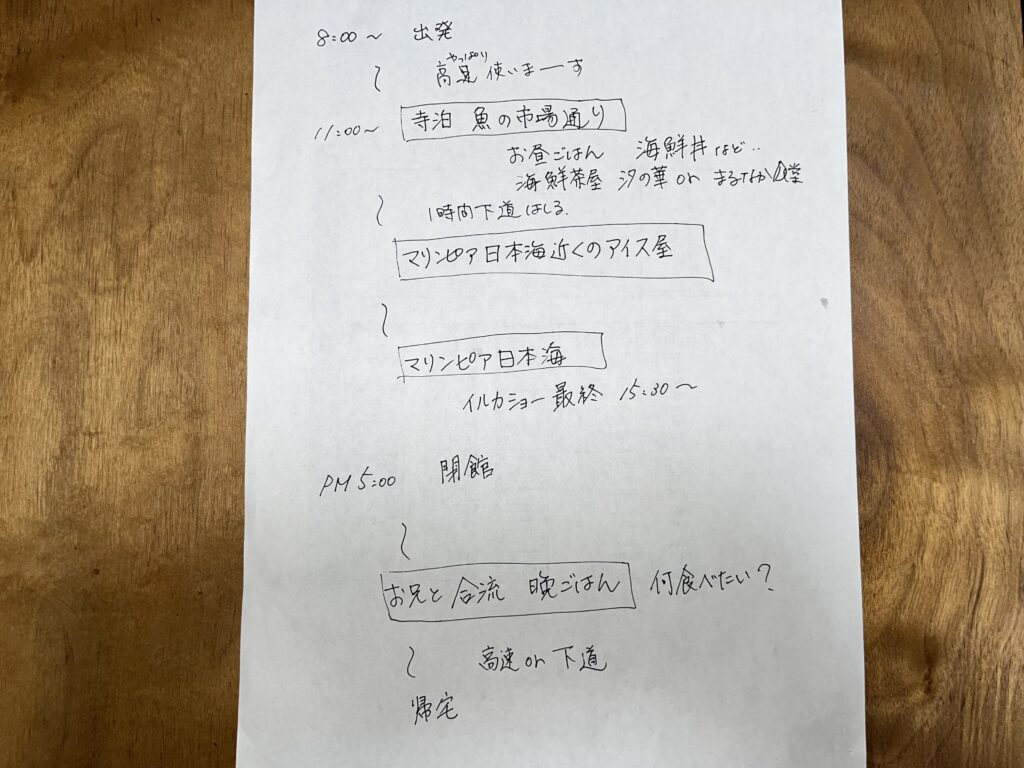 8:00～ 出発
やっぱり
～ 高速 使いまーす
11:00～ 寺泊 魚の市場通り
お昼ごはん 海鮮丼など‥
海鮮茶屋 汐の華 or まるなか食堂
～ 1時間下道はしる.
マリンピア日本海近くのアイス屋
～
マリンピア日本海
イルカショー最終 15:30～
PM 5:00 閉館
～
お兄と合流 晩ごはん 何食べたい?
～ 高速 or 下道
帰宅